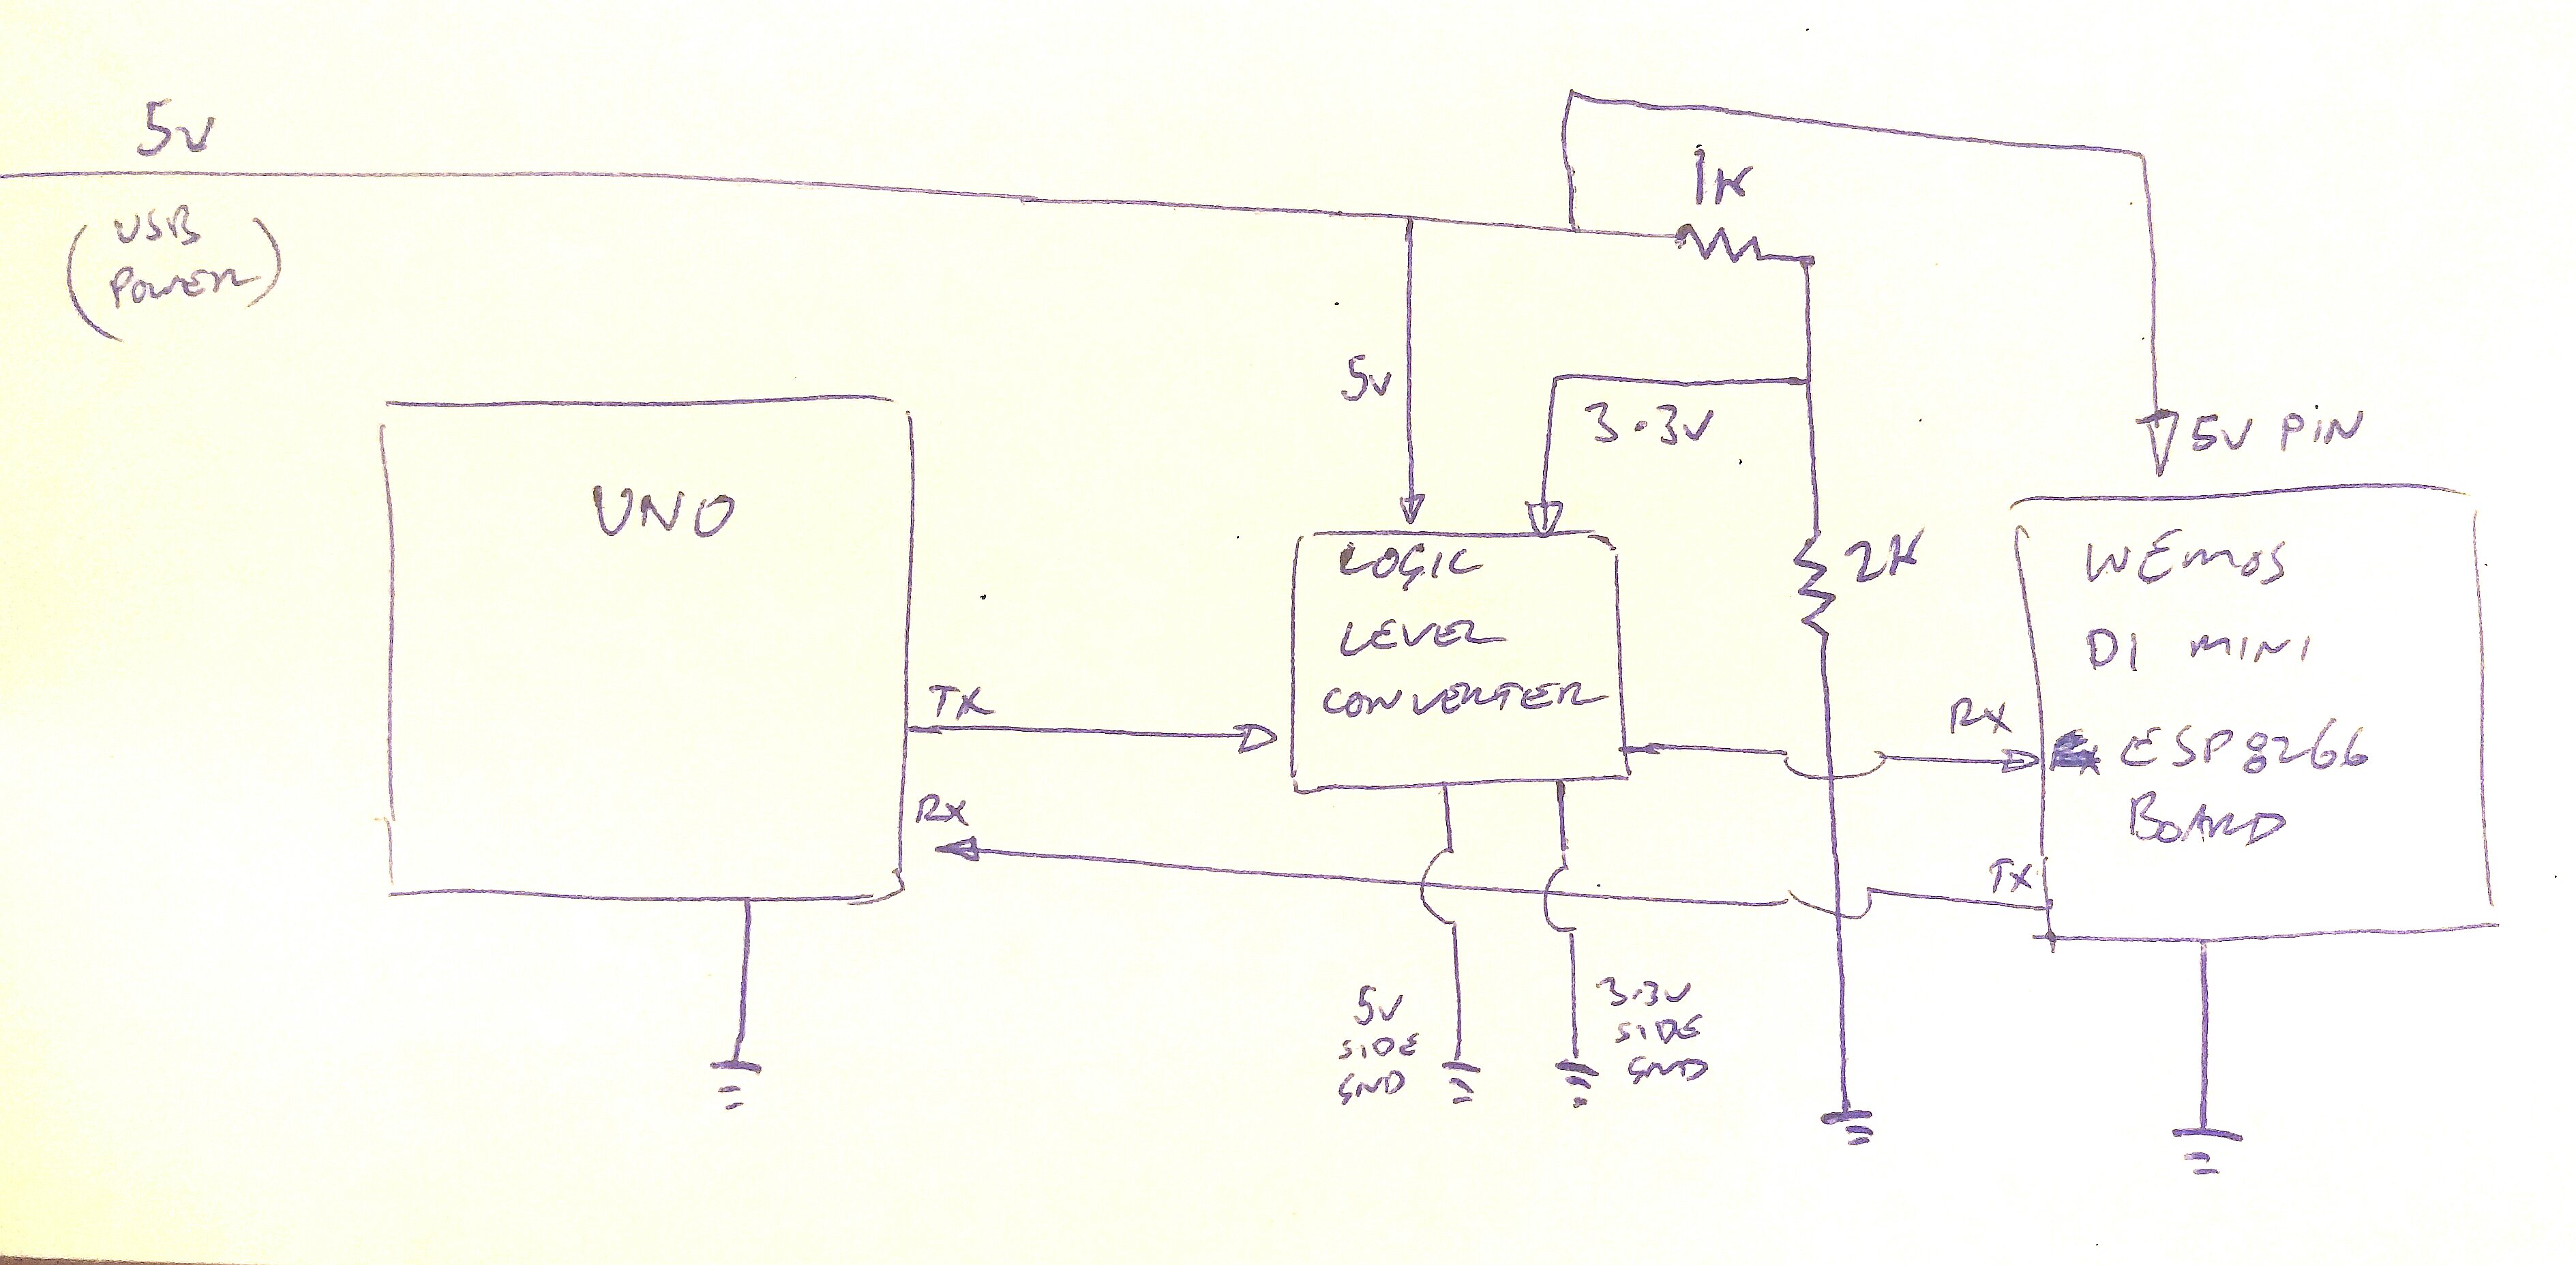 5V
(USB
POWER)
1K
5V
3.3V
5V PIN
UNO
LOGIC
LEVEL
CONVERTER
2K
WEMOS
D1 MINI
ESP8266
BOARD
TX
RX
RX
TX
5V
SIDE
GND
3.3V
SIDE
GND